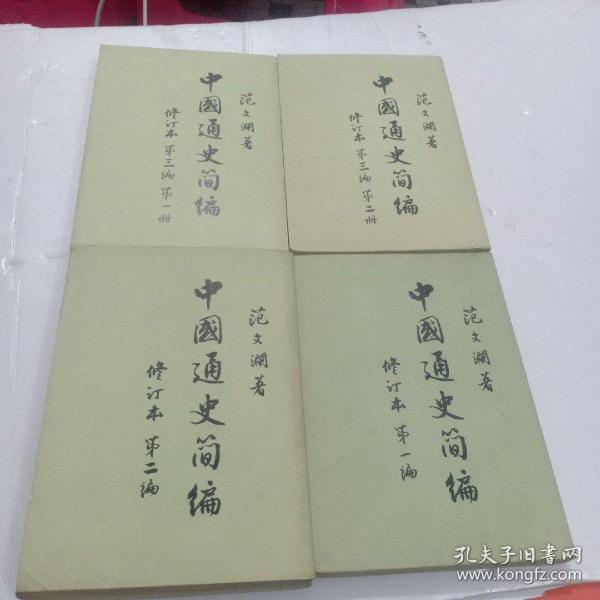 范文瀾著
中國通史简编
修订本 第三编 第一册
范文瀾著
中國通史简编
修订本 第三编 第二册
范文瀾著
中國通史简编
修订本 第二编
范文瀾著
中國通史简编
修订本 第一编
孔夫子旧书网
www.kongfz.com